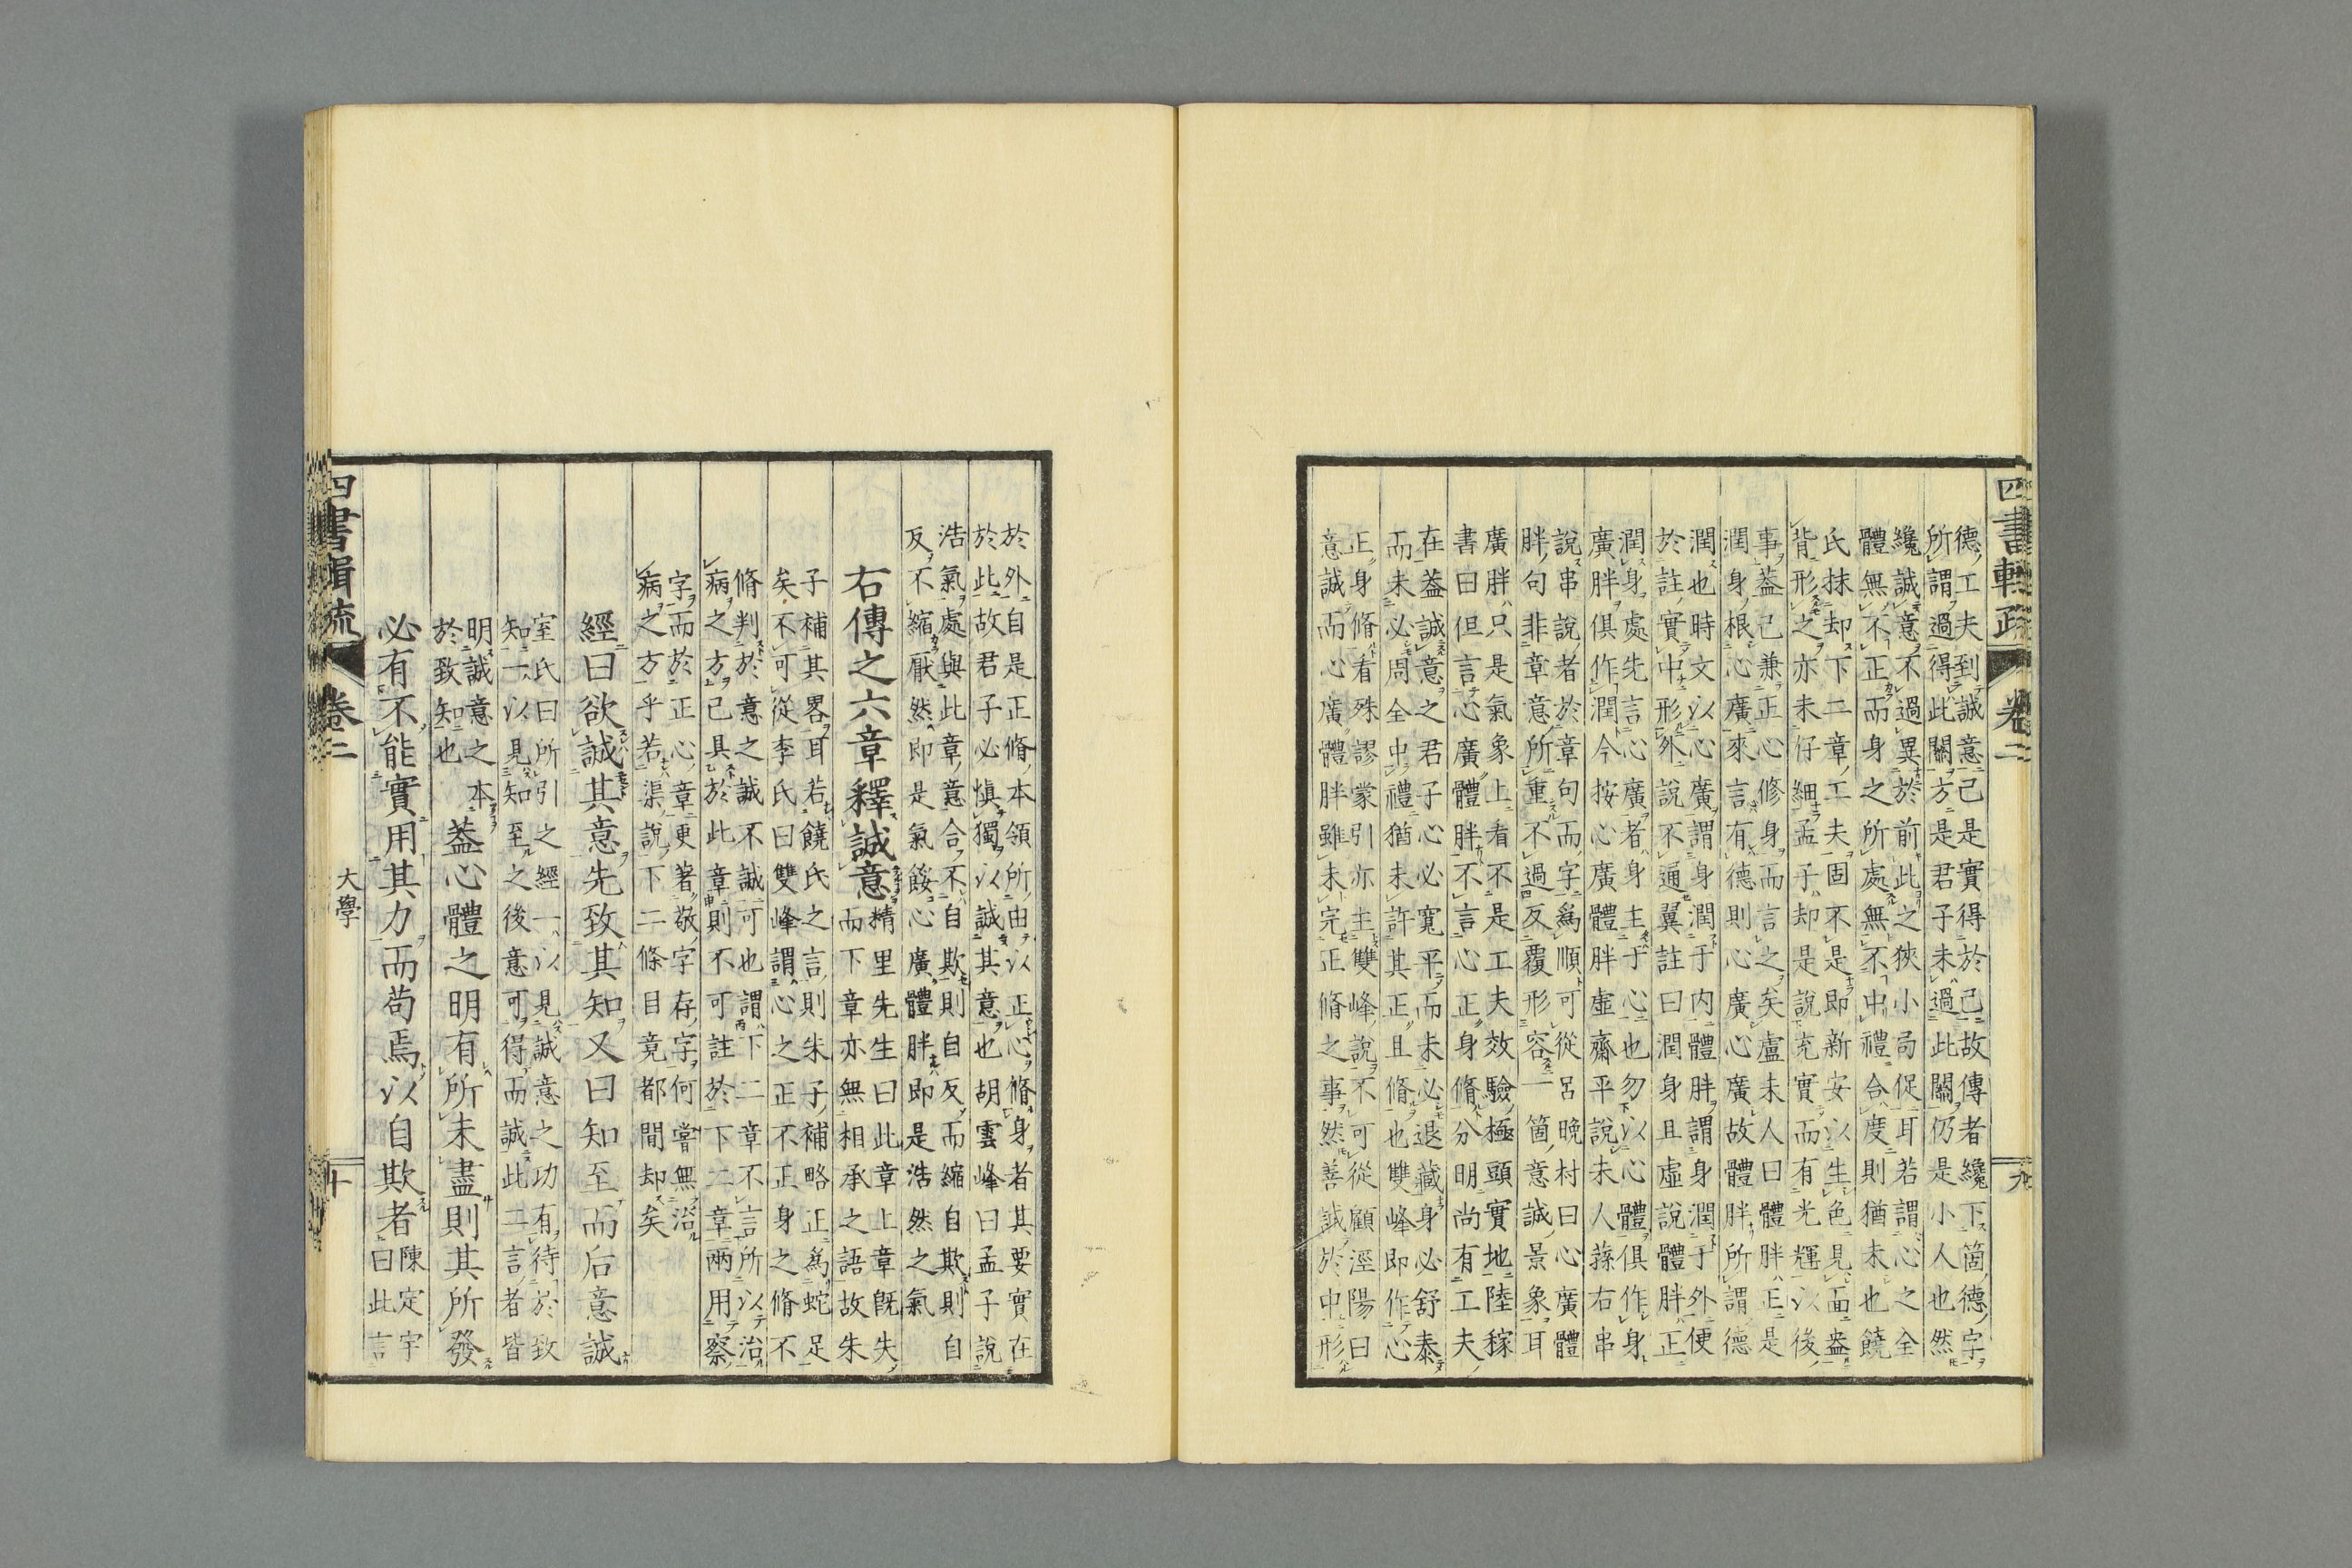 四書輯疏 卷二 九
德工夫到誠意己是實得於己故傳者纔下箇德字
所謂過得此關方是君子未過此關仍是小人也然
纔誠意不過異於前此之狹小局促耳若謂心之全
體無不正而身之所處無不中禮合度則猶未也饒
氏抹却下二章工夫固不是即新安以生色見面盎
背形之亦未仔細孟子却是說充實而有光輝以後
事蓋己兼正心修身而言之矣盧未人曰體胖正是
潤身根心廣來言有德則心廣心廣故體胖所謂德
潤也時文以心廣謂身潤于内體胖謂身潤于外便
於註實中形外說不通翼註曰潤身且虛說體胖正
潤身處先言心廣者身主于心也勿以心體俱作身
廣胖俱作潤今按心廣體胖虛齋平說未人蓀右串
說串說者於章句而字爲順可從呂晚村曰心廣體
胖句非章意所重不過反覆形容一箇意誠景象耳
廣胖只是氣象上看不是工夫效驗極頭實地陸稼
書曰但言心廣體胖不言心正身脩分明尚有工夫
在蓋誠意之君子心必寬平而未必退藏身必舒泰
而未必周全中禮猶未許其正且脩也雙峰即作心
正身脩看殊謬蒙引亦主雙峰說不可從顧涇陽曰
意誠而心廣體胖雖未完正脩之事然善誠於中形
於外自是正脩本領所由以正心脩身者其要實在
於此故君子必愼獨以誠其意也胡雲峰曰孟子說
浩氣處與此章意合不自欺則自反而縮自欺則自
反不縮厭然即是氣餒心廣體胖即是浩然之氣
右傳之六章釋誠意
精里先生曰此章上章旣失
而下章亦無相承之語故朱
子補其畧耳若饒氏之言則朱子補略正爲蛇足
矣不可從李氏曰雙峰謂心之正不正身之脩不
脩判於意之誠不誠可也謂下二章不言所以治
病之方已具於此章則不可註於下二章兩用察
字而於正心章更著敬字存字何嘗無治
病之方乎若渠說下二條目竟都間却矣
經曰欲誠其意先致其知又曰知至而后意誠
室氏曰所引之經一以見誠意之功有待於致
知一以見知至之後意可得而誠此二言者皆
明誠意之本
於致知也
蓋心體之明有所未盡則其所發
必有不能實用其力而苟焉以自欺者
陳定宇
曰此言
四書輯疏 卷二 大學 十